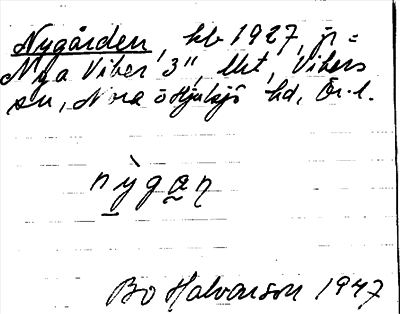 Nygården, hb 1927, jr =
Nya Viber 3", lht, Vikers
sn, Nora o Hjulsjö hd, Ör. l.
nỳgaņ
Bo Halvarson 1947